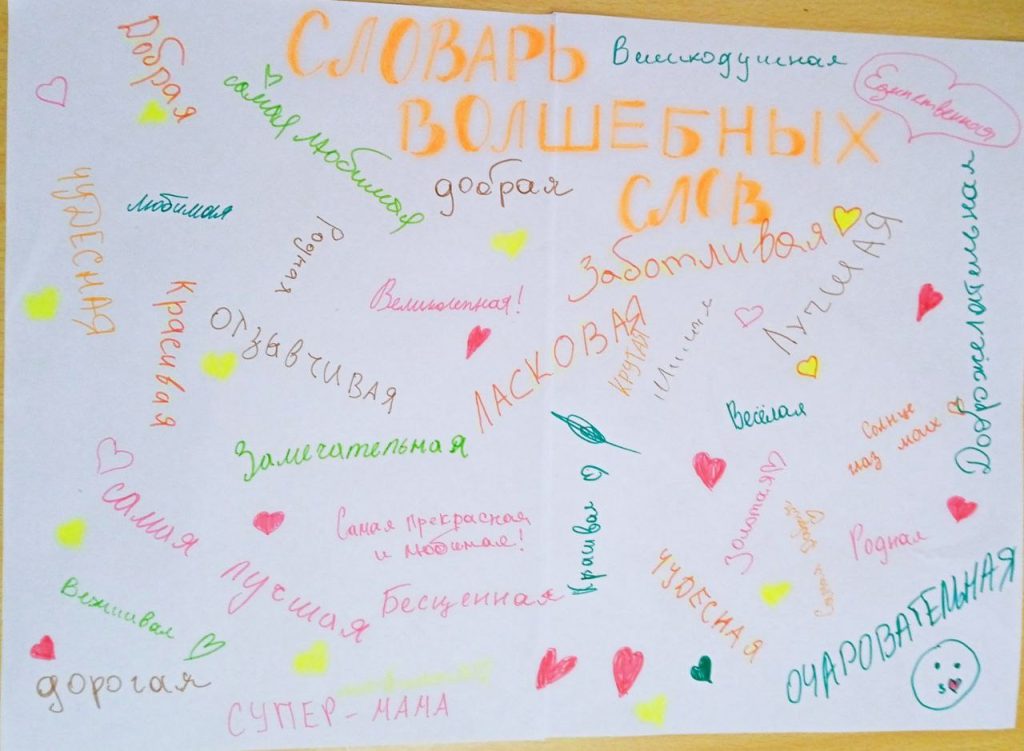 СЛОВАРЬ
ВОЛШЕБНЫХ
СЛОВ
Добрая
самая любимая
Единственная
добрая
любимая
ЧУДЕСНАЯ
Родная
Заботливая
ЛУЧШАЯ
Доброжелательная
Красивая
Великолепная!
ОТЗЫВЧИВАЯ
ЛАСКОВАЯ
КРУТАЯ
Весёлая
Солнце
глаз моих
Замечательная
самая
лучшая
Самая прекрасная
и любимая!
Красивая
Золотая
Родная
Бесценная
ЧУДЕСНАЯ
Вежливая
ОЧАРОВАТЕЛЬНАЯ
дорогая
СУПЕР-МАМА